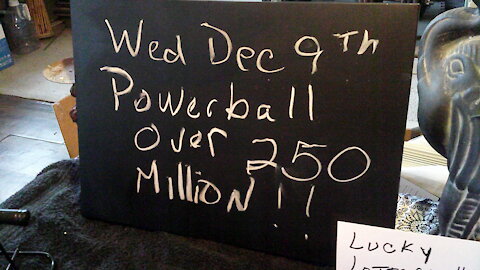 Wed Dec 9Th
Powerball
over 250
Million!!
Lucky